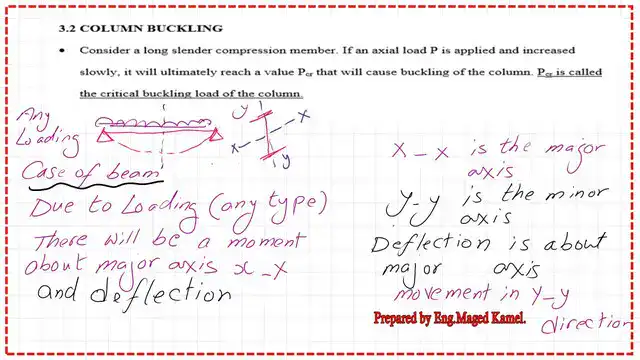 3.2 COLUMN BUCKLING
• Consider a long slender compression member. If an axial load P is applied and increased
slowly, it will ultimately reach a value Pcr that will cause buckling of the column. Pcr is called
the critical buckling load of the column.
Any
Loading
y
x
x
y
Case of beam
Due to Loading (any type)
There will be a moment
about major axis x-x
and deflection
X-x is the major
axis
y-y is the minor
axis
Deflection is about
major axis
movement in Y-y
direction
Prepared by Eng.Maged Kamel.